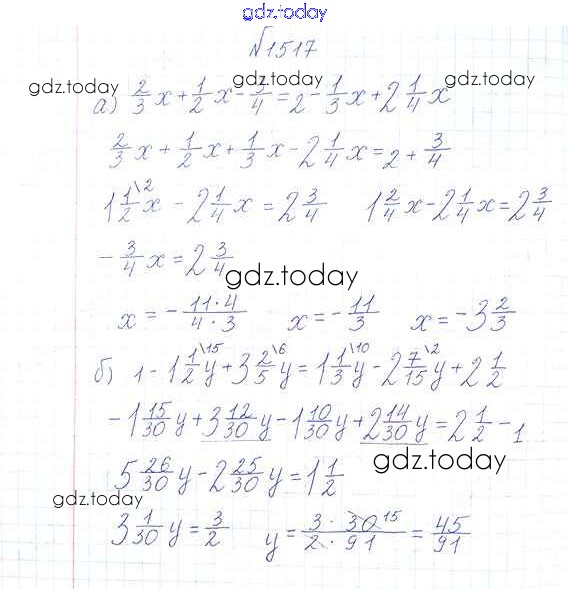 gdz.today
№1517
gdz.today gdz.today
а) 2/3 x + 1/2 x - 3/4 = 2 - 1/3 x + 2 1/4 x
2/3 x + 1/2 x + 1/3 x - 2 1/4 x = 2 + 3/4
1 1/2\2 x - 2 1/4 x = 2 3/4 1 2/4 x - 2 1/4 x = 2 3/4
- 3/4 x = 2 3/4
gdz.today
x = - 11·4/4·3 x = - 11/3 x = -3 2/3
б) 1 - 1 1/2\15 y + 3 2/5\6 y = 1 1/3\10 y - 2 7/15\2 y + 2 1/2
-1 15/30 y + 3 12/30 y - 1 10/30 y + 2 14/30 y = 2 1/2 - 1
gdz.today
5 26/30 y - 2 25/30 y = 1 1/2
gdz.today
3 1/30 y = 3/2 y = 3·30 15/2·91 = 45/91